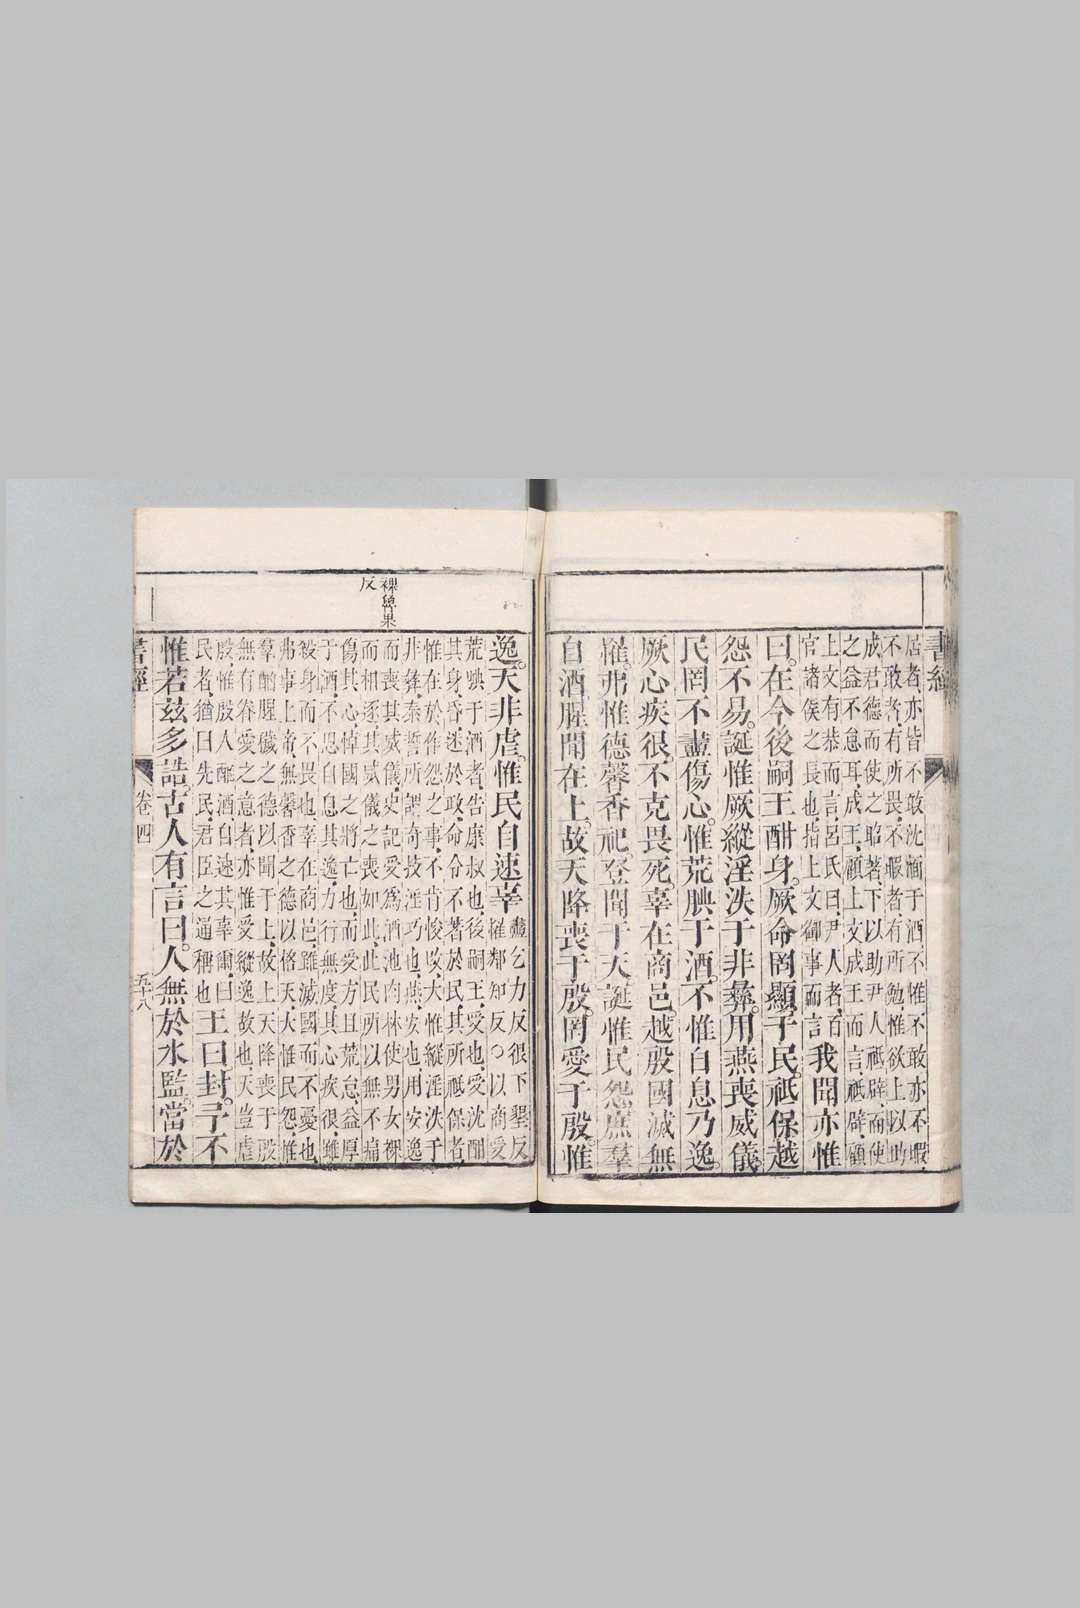 書經
居者,亦皆不敢沈湎于酒,不惟不敢,亦不暇,
不敢者,有所畏,不暇者,有所勉,惟欲上以助
成君德而使之昭著,下以助尹人祗辟而使
之益不怠耳,成王,顧上文成王而言,祗辟,顧
上文有恭而言,呂氏曰,尹人者,百
官諸侯之長也,指上文御事而言
我聞亦惟
曰。在今後嗣王酣身。厥命罔顯于民。祗保越
怨不易。誕惟厥縱淫泆于非彝。用燕喪威儀。
民罔不盡傷心。惟荒腆于酒。不惟自息乃逸。
厥心疾很。不克畏死。辜在商邑。越殷國滅無
罹。弗惟德馨香祀。登聞于天。誕惟民怨。庶羣
自酒。腥聞在上。故天降喪于殷。罔愛于殷。惟
裸魯果
反
逸。天非虐。惟民自速辜
盡乞力反很下墾反
罹鄰知反○以商受
荒腆于酒者,告康叔也,後嗣王,受也,受沈酣
其身,昏迷於政,命令不著於民,其所祗保者,
惟在於作怨之事,不肯悛改,大惟縱淫泆于
非彝,泰誓所謂奇技淫巧也,燕,安也,用安逸
而喪其威儀,史記受爲酒池肉林,使男女裸
而相逐,其威儀之喪如此,此民所以無不痛
傷其心,悼國之將亡也,而受方且荒怠,益厚
于酒,不思自息其逸,力行無度,其心疾很,雖
殺身而不畏也,辜在商邑,雖滅國而不憂也,
弗事上帝,無馨香之德以格天,大惟民怨,惟
羣酗腥穢之德以聞于上,故上天降喪于殷
無有眷愛之意者,亦惟受縱逸故也,天豈虐
殷,惟殷人酗酒自速其辜爾,曰
民者,猶曰先民,君臣之通稱也
王曰封。予不
惟若茲多誥。古人有言曰。人無於水監。當於
書經
卷四
五十八